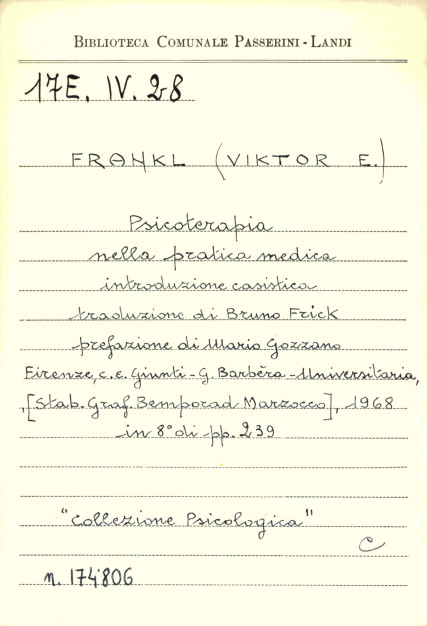 BIBLIOTECA COMUNALE PASSERINI-LANDI
17E. IV. 28
FRANKL (VIKTOR E.)
Psicoterapia
nella pratica medica
introduzione casistica
traduzione di Bruno Frick
prefazione di Mario Gozzano
Firenze, c.e. Giunti-G. Barbèra-Universitaria,
,[Stab. Graf. Bemporad Marzocco], 1968
in 8° di pp. 239
"Collezione Psicologica"
C
n. 174806